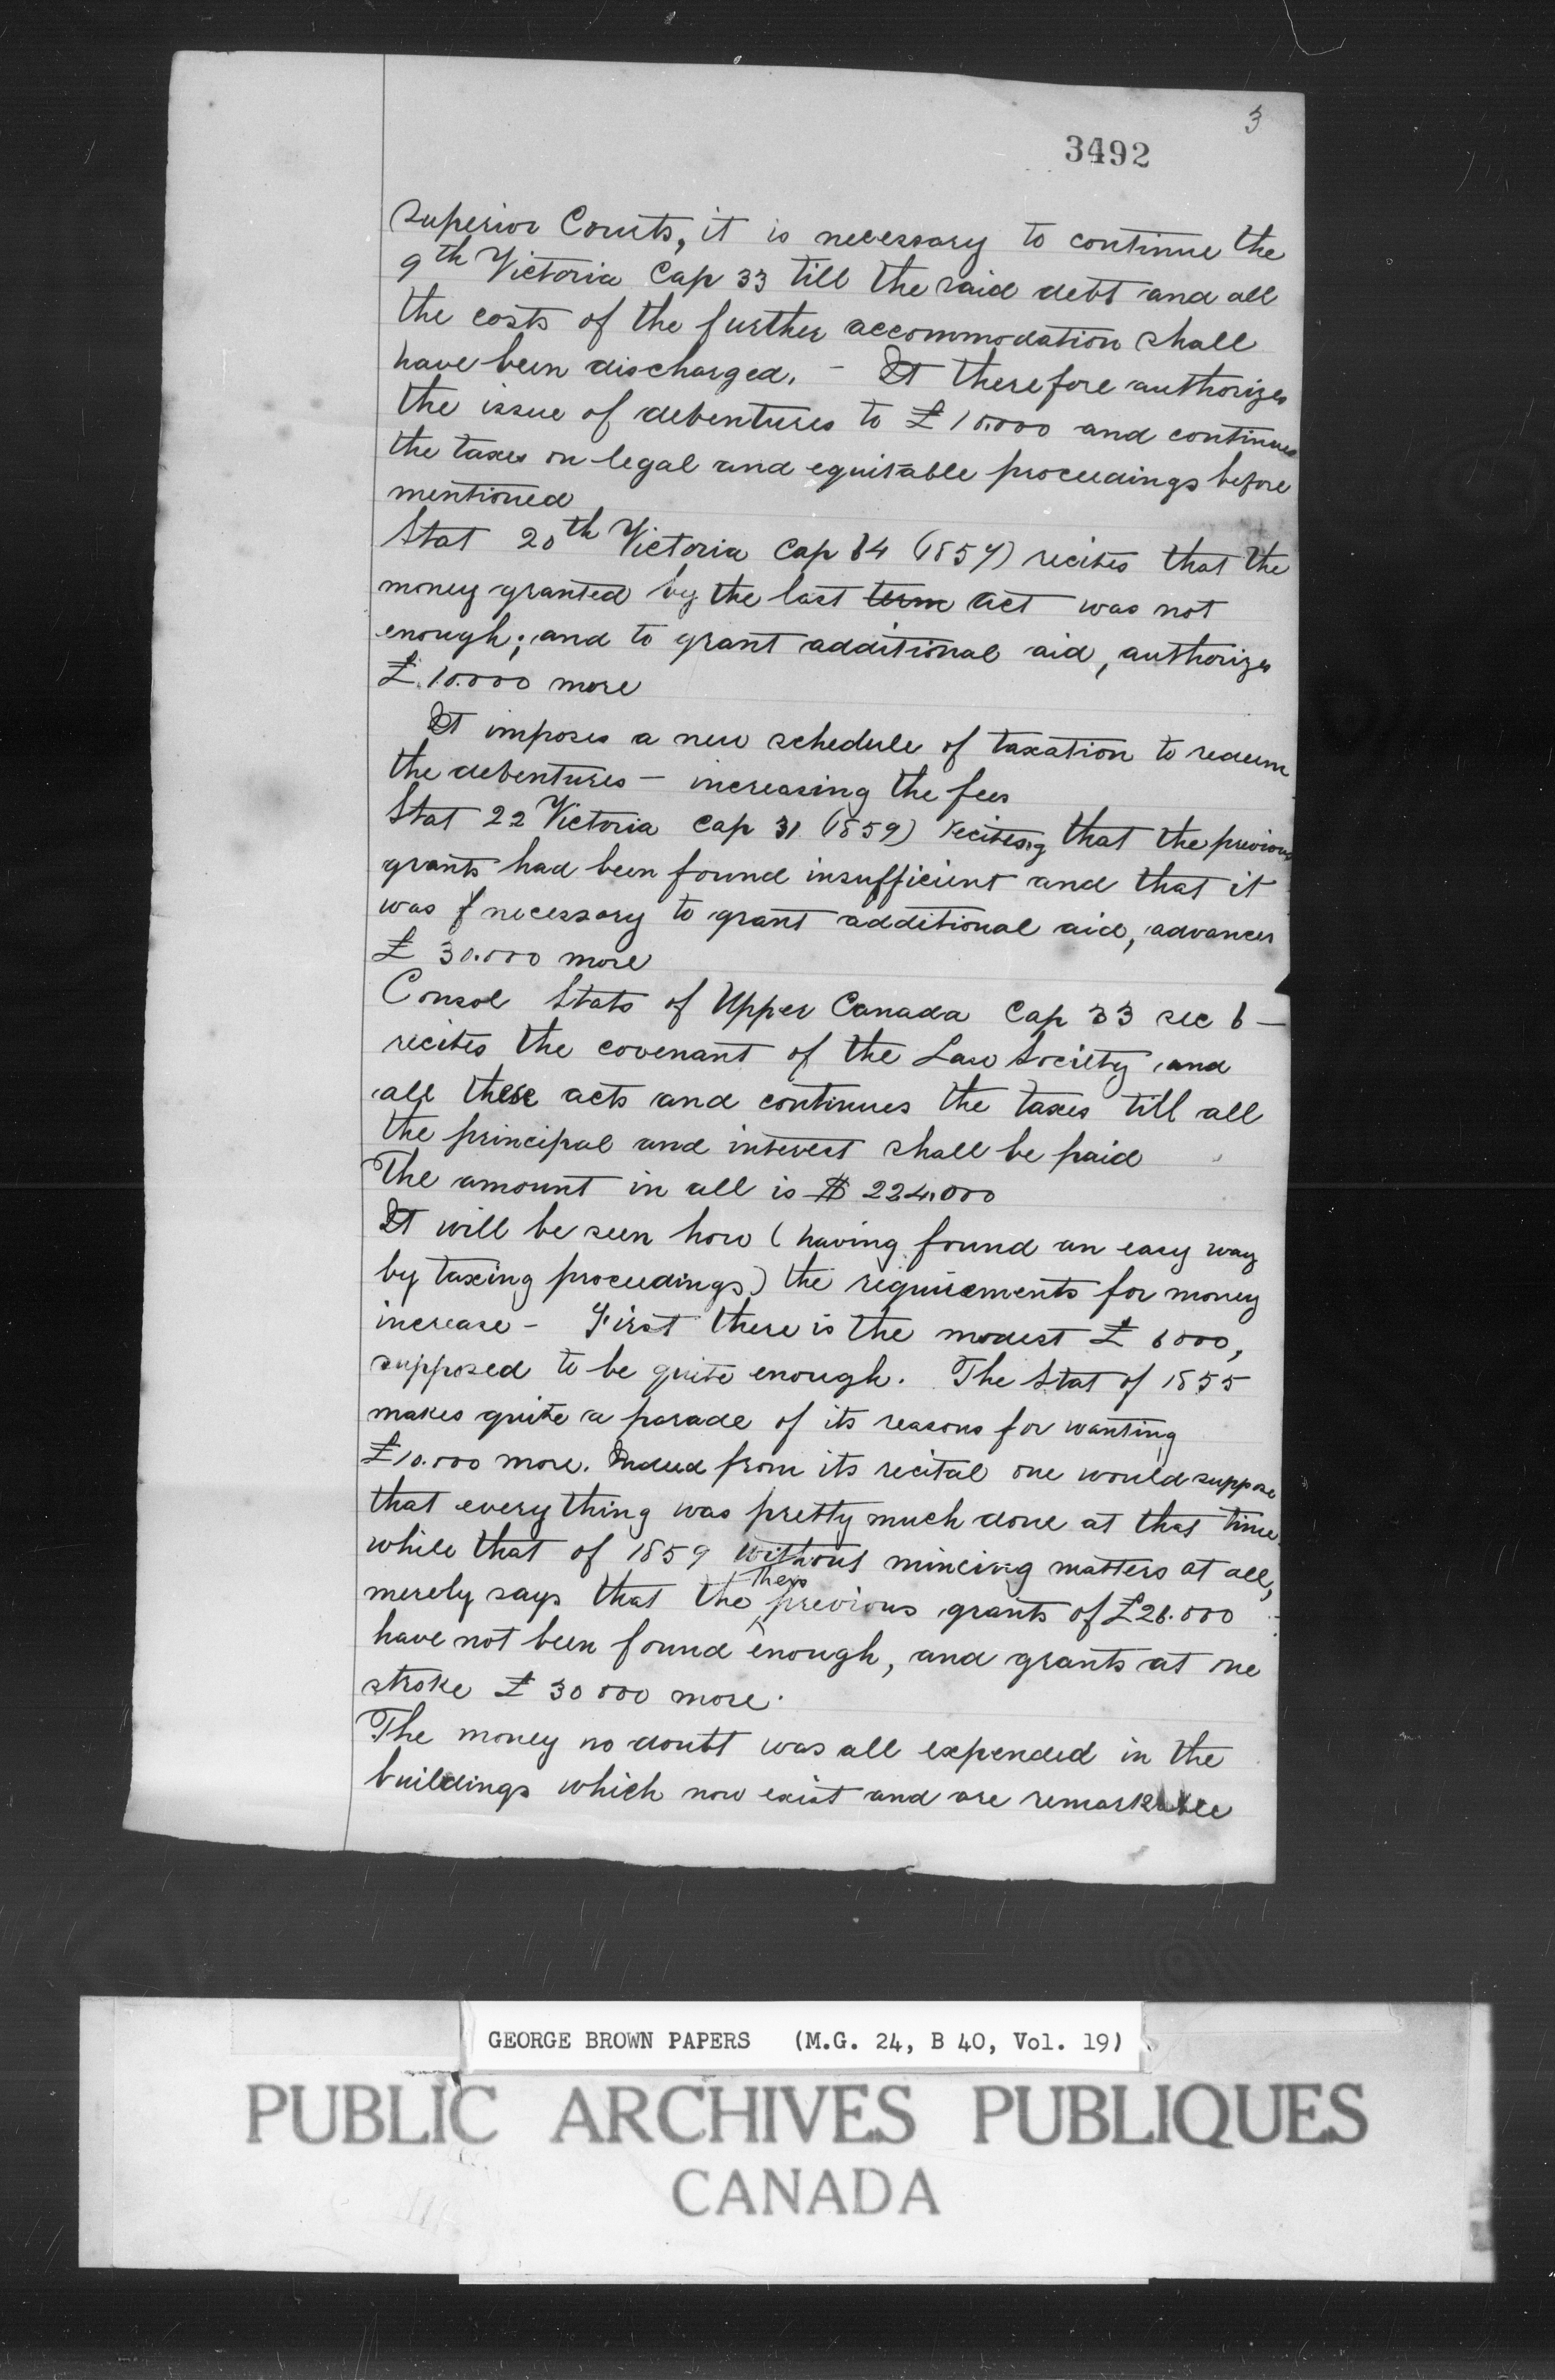 3
3492
Superior Courts, it is necessary to continue the
9th Victoria Cap 33 till the said debt and all
the costs of the further accommodation shall
have been discharged. - It therefore authorizes
the issue of debentures to £10.000 and continues
the taxes on legal and equitable proceedings before
mentioned
Stat 20th Victoria Cap 64 (1857) recites that the
money granted by the last term act was not
enough; and to grant additional aid, authorizes
£.10.000 more
It imposes a new schedule of taxation to redeem
the debentures - increasing the fees
Stat 22 Victoria cap 31 (1859) reciting that the previous
grants had been found insufficient and that it
was f necessary to grant additional aid, advances
£ 30.000 more
Consol Stats of Upper Canada Cap 33 sec 6 -
recites the covenant of the Law Society and
all these acts and continues the taxes till all
the principal and interest shall be paid
The amount in all is $ 224.000
It will be seen how (having found an easy way
by taxing proceedings) the requirements for money
increase - First there is the modest £ 6000,
supposed to be quite enough. The Stat of 1855
makes quite a parade of its reasons for wanting
£10.000 more. Indeed from its recital one would suppose
that every thing was pretty much done at that time
while that of 1859 without mincing matters at all,
merely says that the then previous grants of £26.000
have not been found enough, and grants at one
stroke £ 30000 more.
The money no doubt was all expended in the
buildings which now exist and are remarkable
GEORGE BROWN PAPERS (M.G. 24, B 40, Vol. 19)
PUBLIC ARCHIVES PUBLIQUES
CANADA